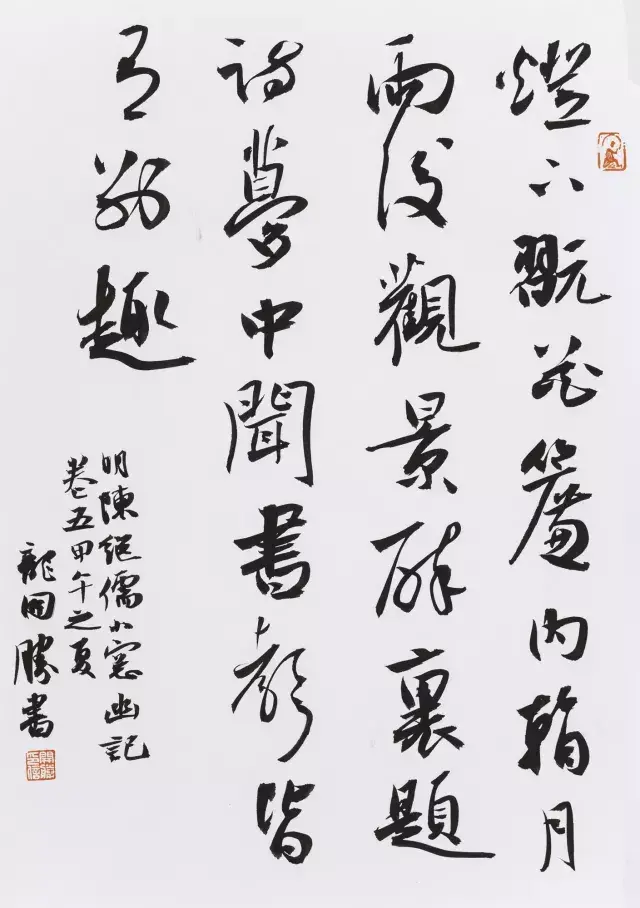 燈下翫花簾內看月
雨後觀景醉裏題
詩夢中聞書聲皆
有別趣
明陳繼儒小窻幽記
卷五甲午之夏
龍開勝書